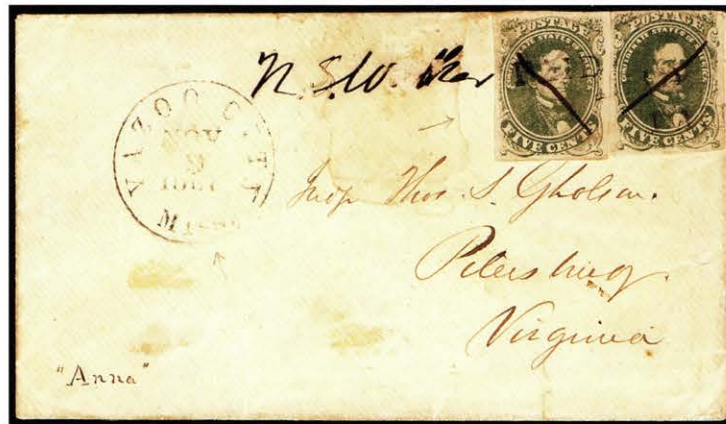 POSTAGE
CONFEDERATE STATES OF AMERICA
FIVE CENTS
POSTAGE
CONFEDERATE STATES OF AMERICA
FIVE CENTS
YAZOO CITY
NOV
1861
MISS
Judge Thos. S. Gholson.
Petersburg.
Virginia
"Anna"